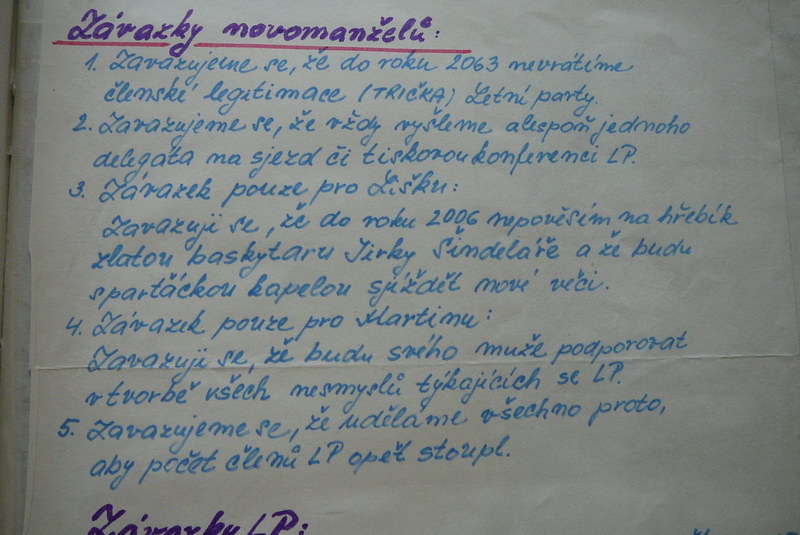 Závazky novomanželů:
1. Zavazujeme se, že do roku 2063 nevrátíme
členské legitimace (TRIČKA) Letní party.
2. Zavazujeme se, že vždy vyšleme alespoň jednoho
delegáta na sjezd či tiskovou konferenci LP.
3. Závazek pouze pro Lišku:
Zavazuji se, že do roku 2006 nepověsím na hřebík
zlatou baskytaru Jirky Šindeláře a že budu
s partáckou kapelou sjíždět nové věci.
4. Závazek pouze pro Martinu:
Zavazuji se, že budu svého muže podporovat
v tvorbě všech nesmyslů týkajících se LP.
5. Zavazujeme se, že uděláme všechno proto,
aby počet členů LP opět stoupl.
Závazky LP: